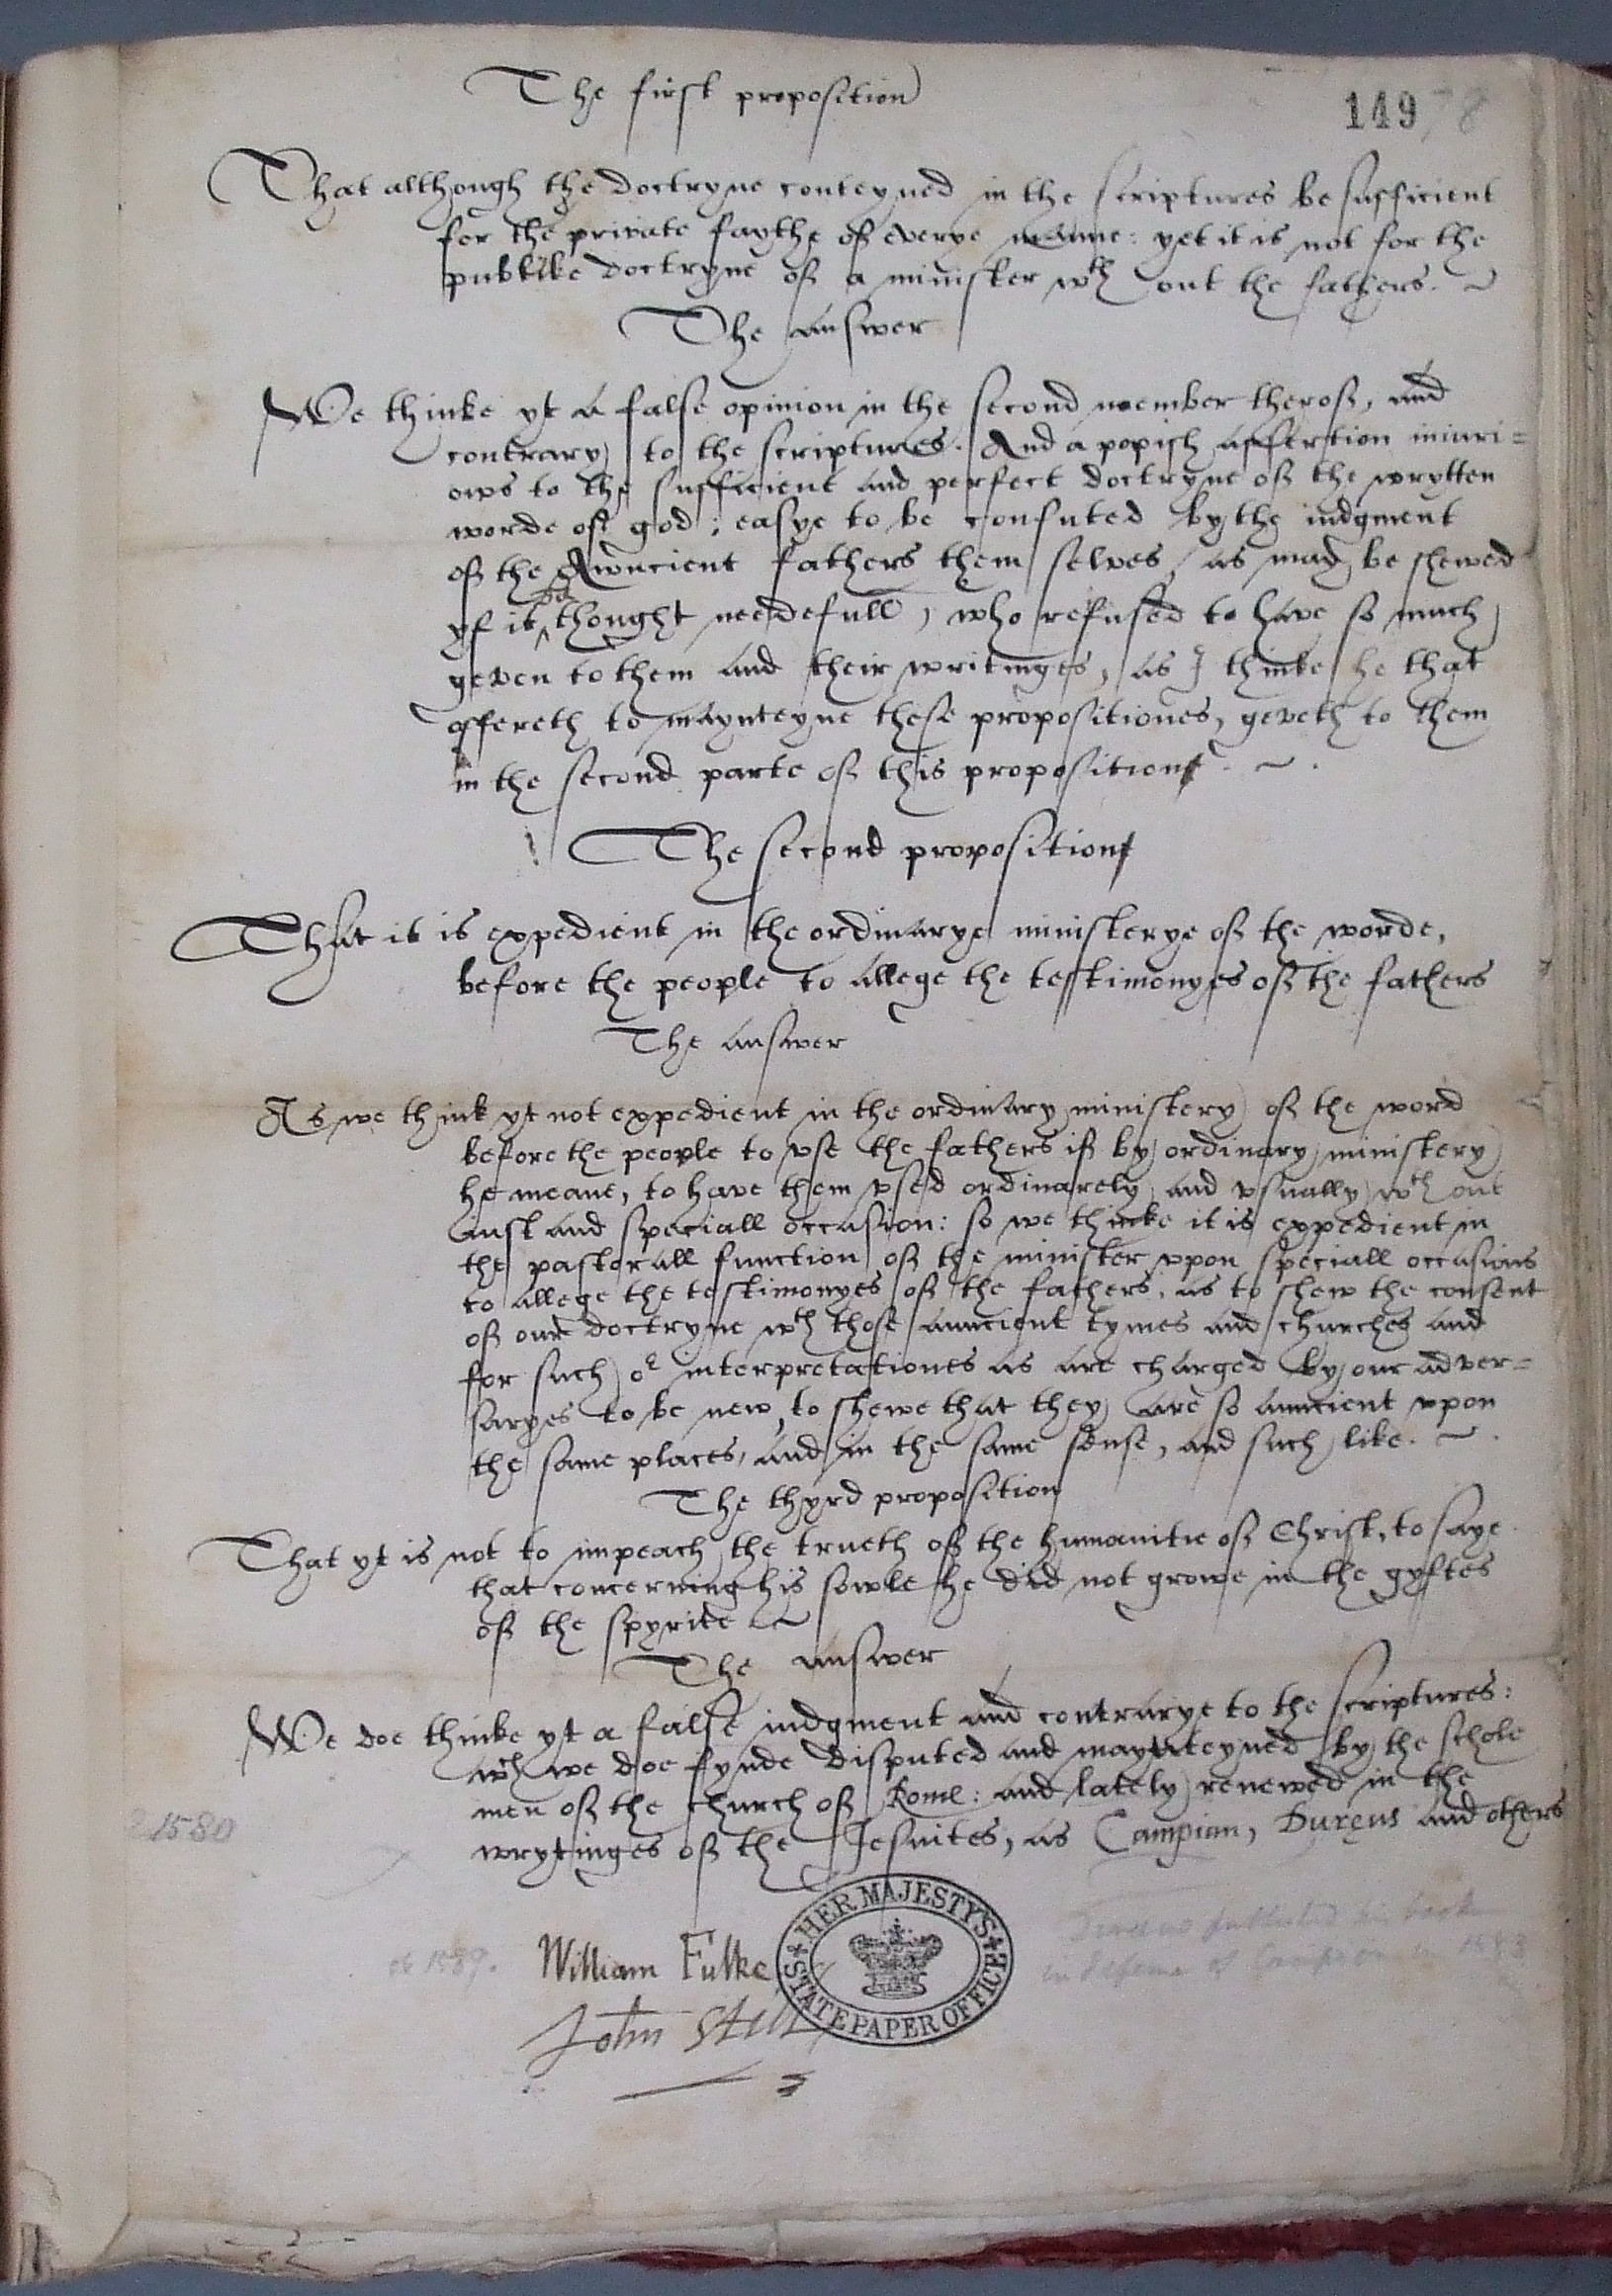 The first proposition
149 78
That although the doctryne conteyned in the scriptures be sufficient
for the private faythe of everye manne: yet it is not for the
publike doctryne of a minister wth out the fathers. ~
The answer
We thinke yt a false opinion in the second member therof, and
contrary to the scriptures. And a popish assertion iniuri=
ows to the sufficient and perfect doctryne of the wrytten
worde of god; easye to be confuted by the iudgment
of the Auncient fathers them selves, as may be shewed
yf it be thought needefull, who refused to have so much
geven to them and their writinges, as I thinke he that
offereth to maynteyne these propositiones, geveth to them
in the second parte of this proposition. ~ .
The second proposition
That it is expedient in the ordinarye ministerye of the worde,
before the people to allege the testimonyes of the fathers
The answer
As we think yt not expedient in the ordinary ministery of the word
before the people to vse the fathers if by ordinary ministery
he meane, to have them vsed ordinarely and vsually wth out
iust and speciall occasion: so we thinke it is expedient in
the pastorall function of the minister vppon speciall occasions
to allege the testimonyes of the fathers, as to shew the consent
of oure doctryne wth those auncient tymes and churches and
for such or interpretationes as are charged by our adver=
saryes to be new, to shewe that they are so auncient vpon
the same places, and in the same sense, and such like. ~ .
The thyrd proposition
That yt is not to impeach the trueth of the humanitie of Christ, to saye
that concerning his sowle he did not growe in the gyftes
of the spyrite ~
The answer
We doe thinke yt a false iudgment and contrarye to the scriptures:
wch we doe fynde disputed and maynteyned by the schole
men of the church of Rome: and lately renewed in the
wrytinges of the Jesuites, as Campian, Dureus and others
1580
ob 1589.
William Fulke
John Still
HER MAJESTY'S STATE PAPER OFFICE
Dureus published his book
in defence of Campion in 1583